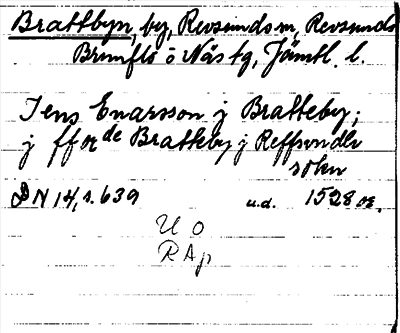 Brattbyn, by, Revsunds sn, Revsunds
Brunflo o Näs tg, Jämtl. l.
Jens Enarsson j Bratteby;
j fforde Bratteby j Reffsundz
sokn
DN 14, s. 639 u.d. 1528 or.
U O
R Ap